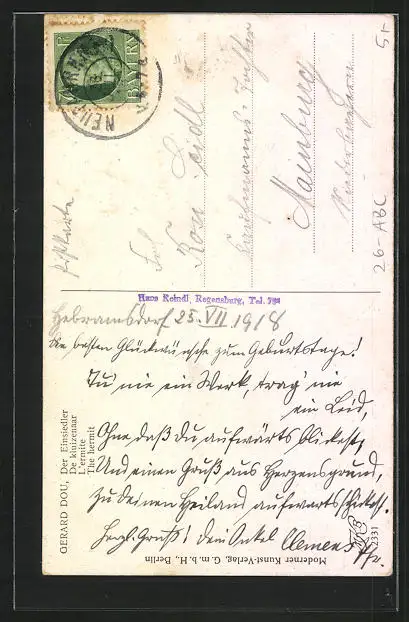 5.-
BAYERN
Postkarte
Frl.
Rosa Seidl
Kaufmanns-Tochter
Mainburg
Niederbayern
26-ABC
Hans Reindl, Regensburg, Tel. 784
Hebramsdorf 25. VII. 1918
Die besten Glückwünsche zum Geburtstage!
Tu' nie ein Werk, trag' nie
ein Leid,
Ohne daß du aufwärts blickest,
Und einen Gruß aus Herzensgrund,
Zu deinen Heiland aufwärtsschickest.
Herzl. Gruß! dein Onkel Clemens
Pfr.
GERARD DOU, Der Einsiedler
De kluizenaar
L'ermite
The hermit
Moderner Kunst-Verlag, G. m. b. H., Berlin
2331